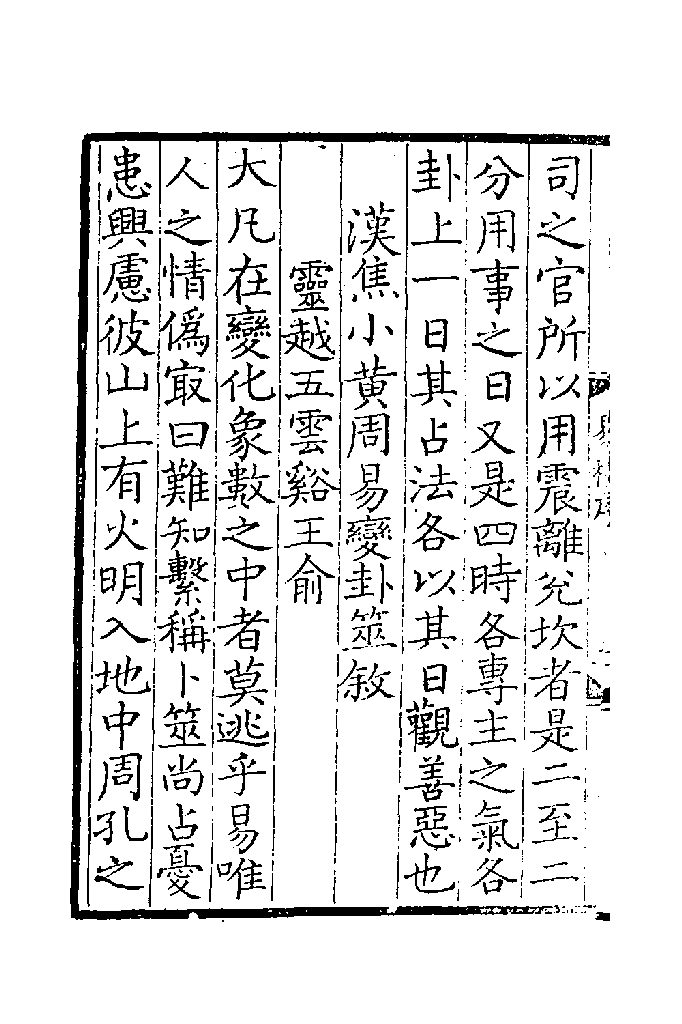 司之官所以用震離兌坎者是二至二
分用事之日又是四時各專主之氣各
卦上一日其占法各以其日觀善惡也
漢焦小黄周易變卦筮敘
靈越五雲谿王俞
大凡在變化象數之中者莫逃乎易唯
人之情僞㝡曰難知繫稱卜筮尚占憂
患興慮彼山上有火明入地中周孔之